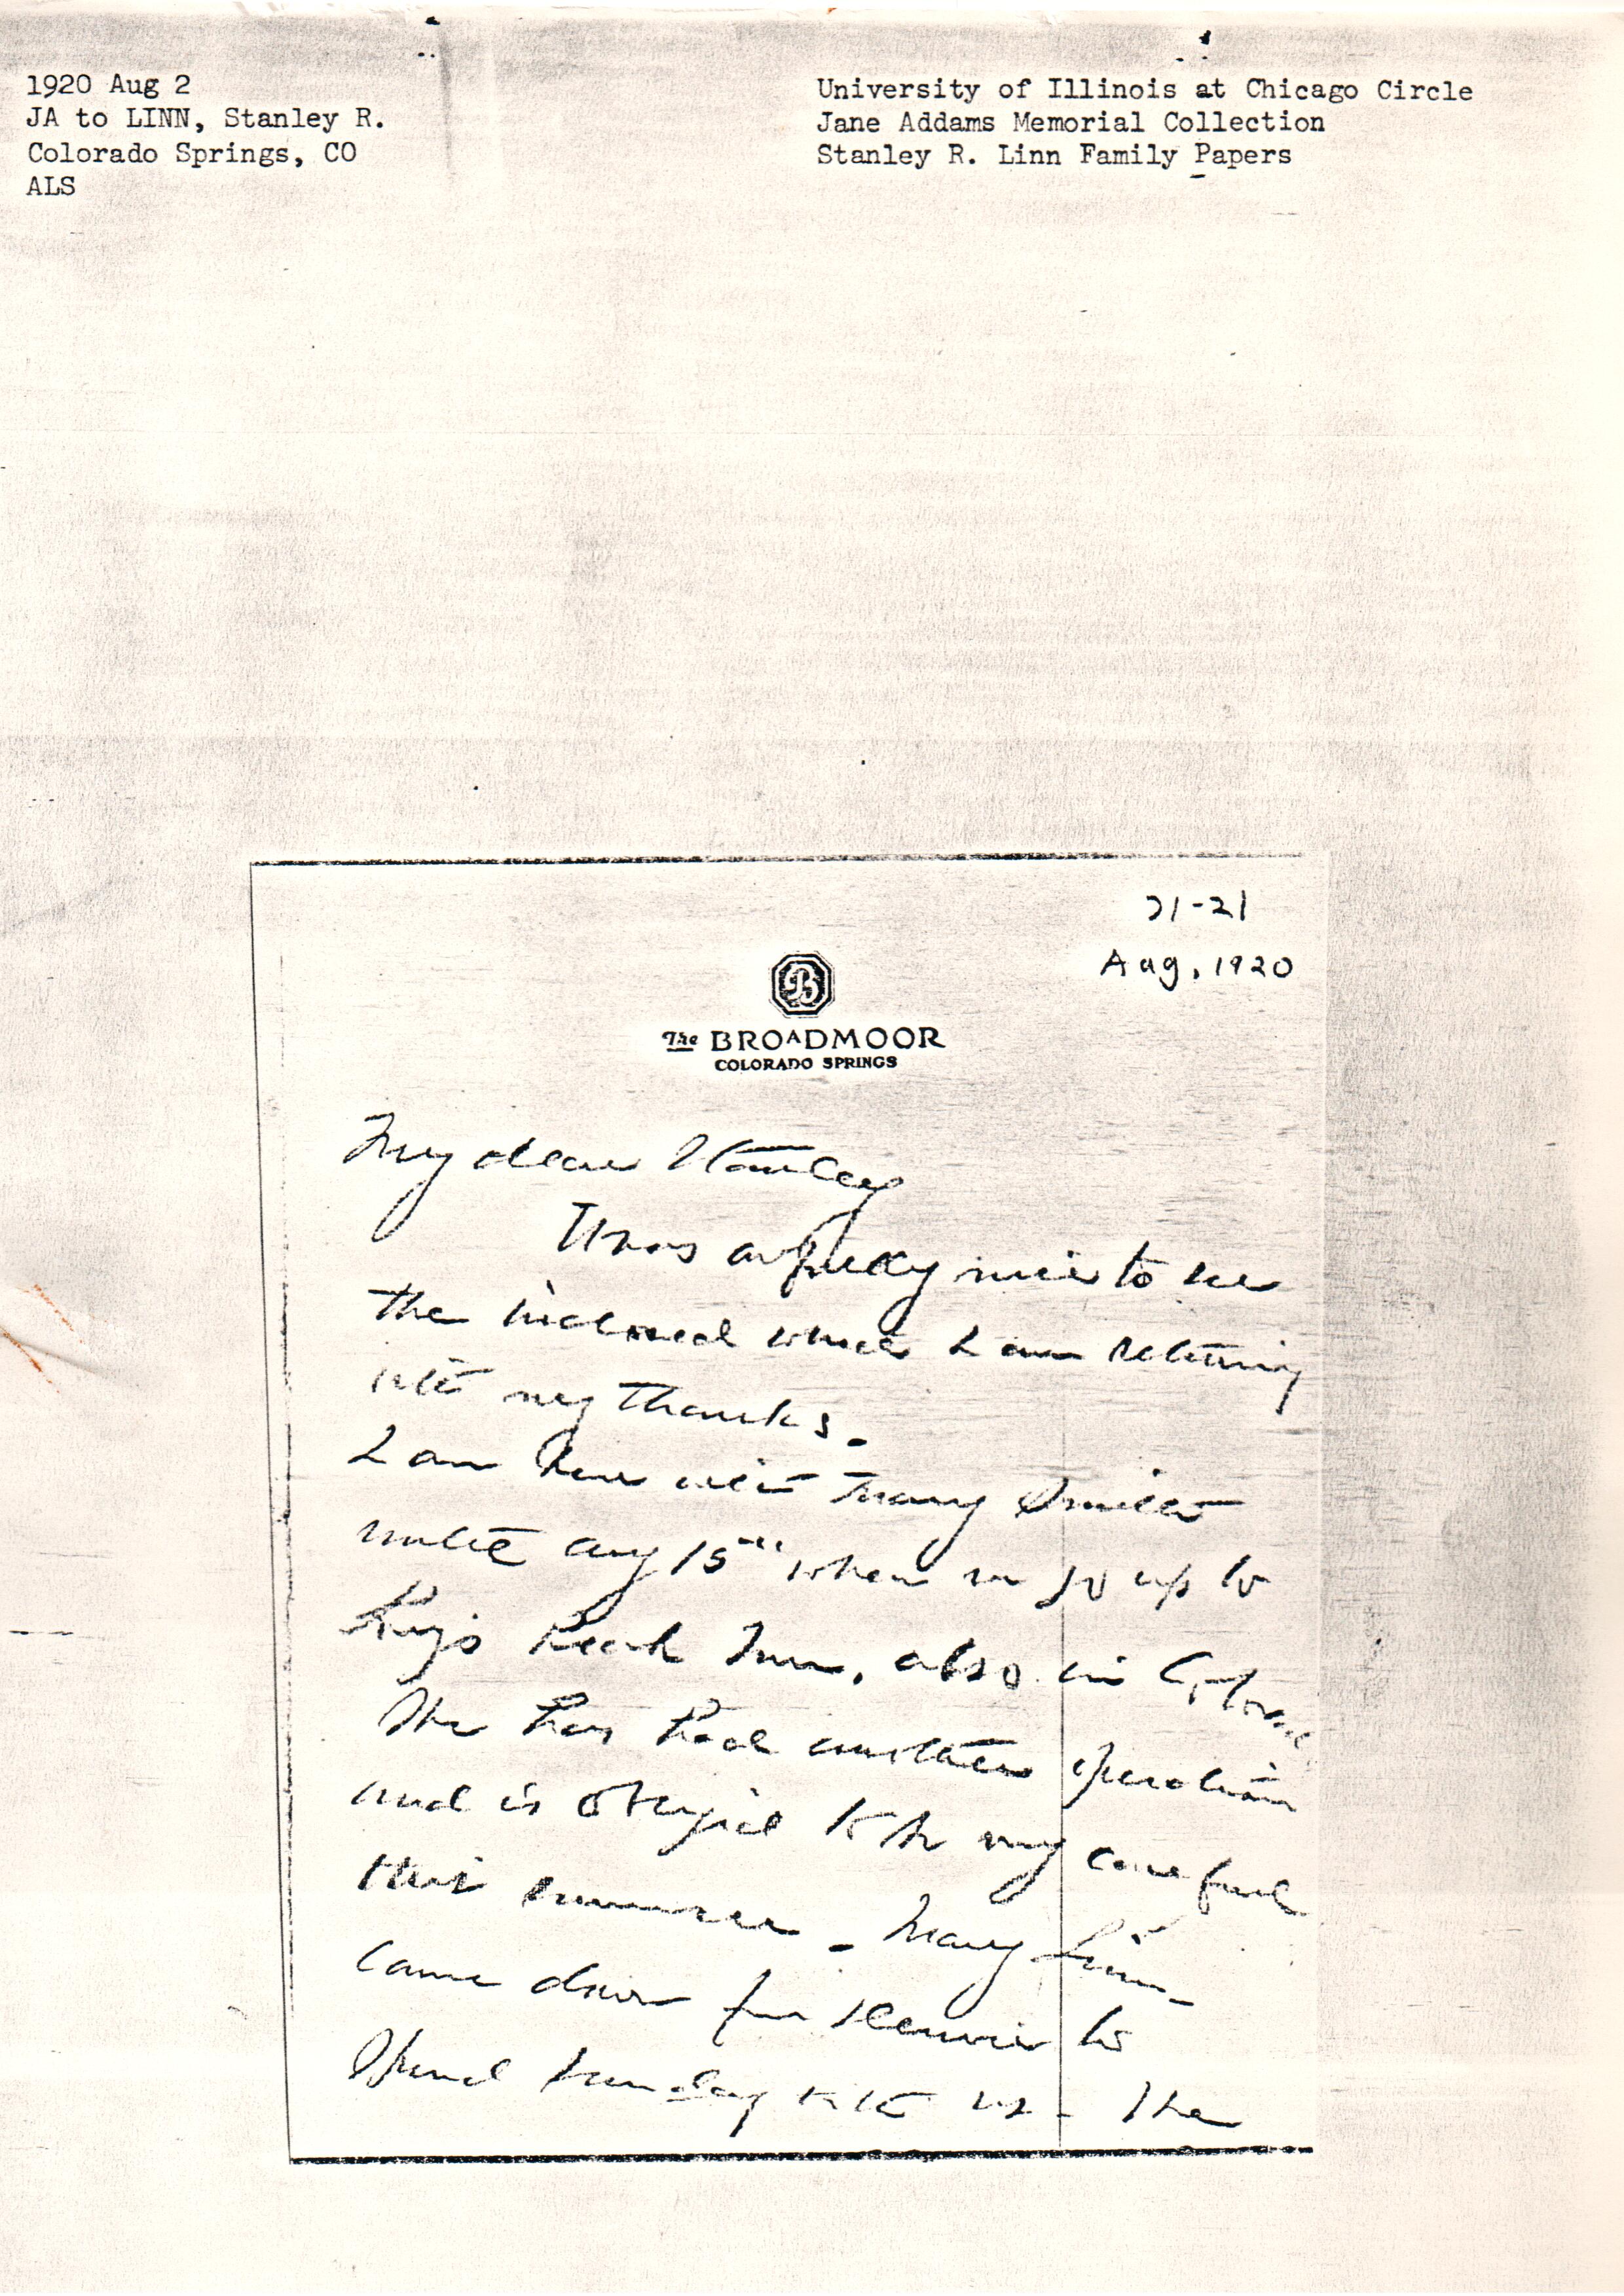 1920 Aug 2
JA to LINN, Stanley R.
Colorado Springs, CO
ALS
University of Illinois at Chicago Circle
Jane Addams Memorial Collection
Stanley R. Linn Family Papers
21-21
Aug, 1920
B
The BROADMOOR
COLORADO SPRINGS
My dear Stanley
It was awfully nice to see
the inclosed which I am returning
with my thanks.
I am here with Mary Smith
until Aug 15" when we go up to
Peak Inn, also in
She has had another operation
and is obliged to be very careful
this summer - Mary Linn
came down from Denver to
spend Sunday with us - She